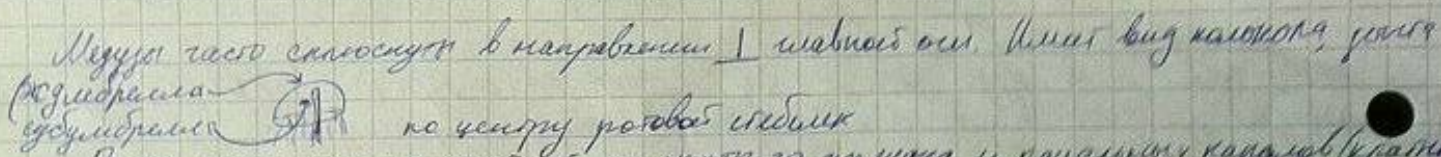 Медузы часто сплюснуты в направлении ⊥ главной оси. Имеет вид колокола, зонта
(эксумбрелла
субумбрелла по центру ротовой стебелёк
каналов